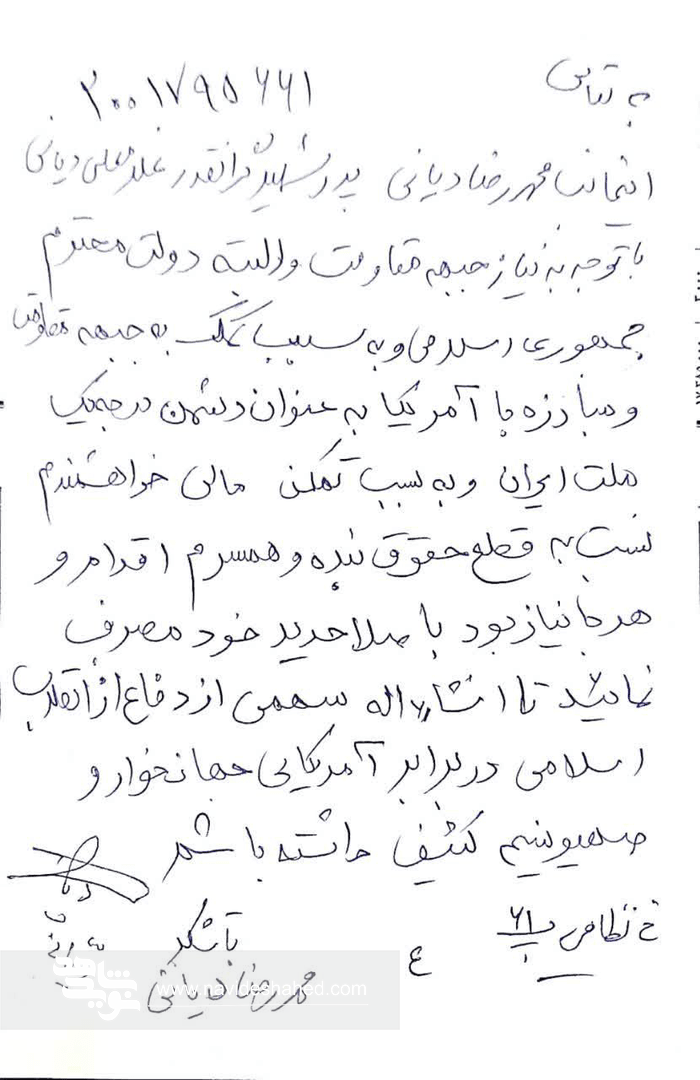 به تعالی
۲۰۰۱۷۹۵۶۶۱
اینجانب محمدرضا دیانی پدر شهید گرانقدر غلامعلی دیانی
با توجه به نیاز جبهه مقاومت و البته دولت محترم
جمهوری اسلامی و به سبب کمک به جبهه مقاومت
و مبارزه با آمریکا به عنوان دشمن درجه یک
ملت ایران و به سبب تمکن مالی خواهشمندم
نسبت به قطع حقوق بنده و همسرم اقدام و
هر جا نیاز بود با صلاحدید خود مصرف
نمائید تا انشاء اله سهمی از دفاع از انقلاب
اسلامی در برابر آمریکای جهانخوار و
صهیونیسم کثیف داشته باشم
باتشکر
محمدرضا دیانی
www.navideshahed.com